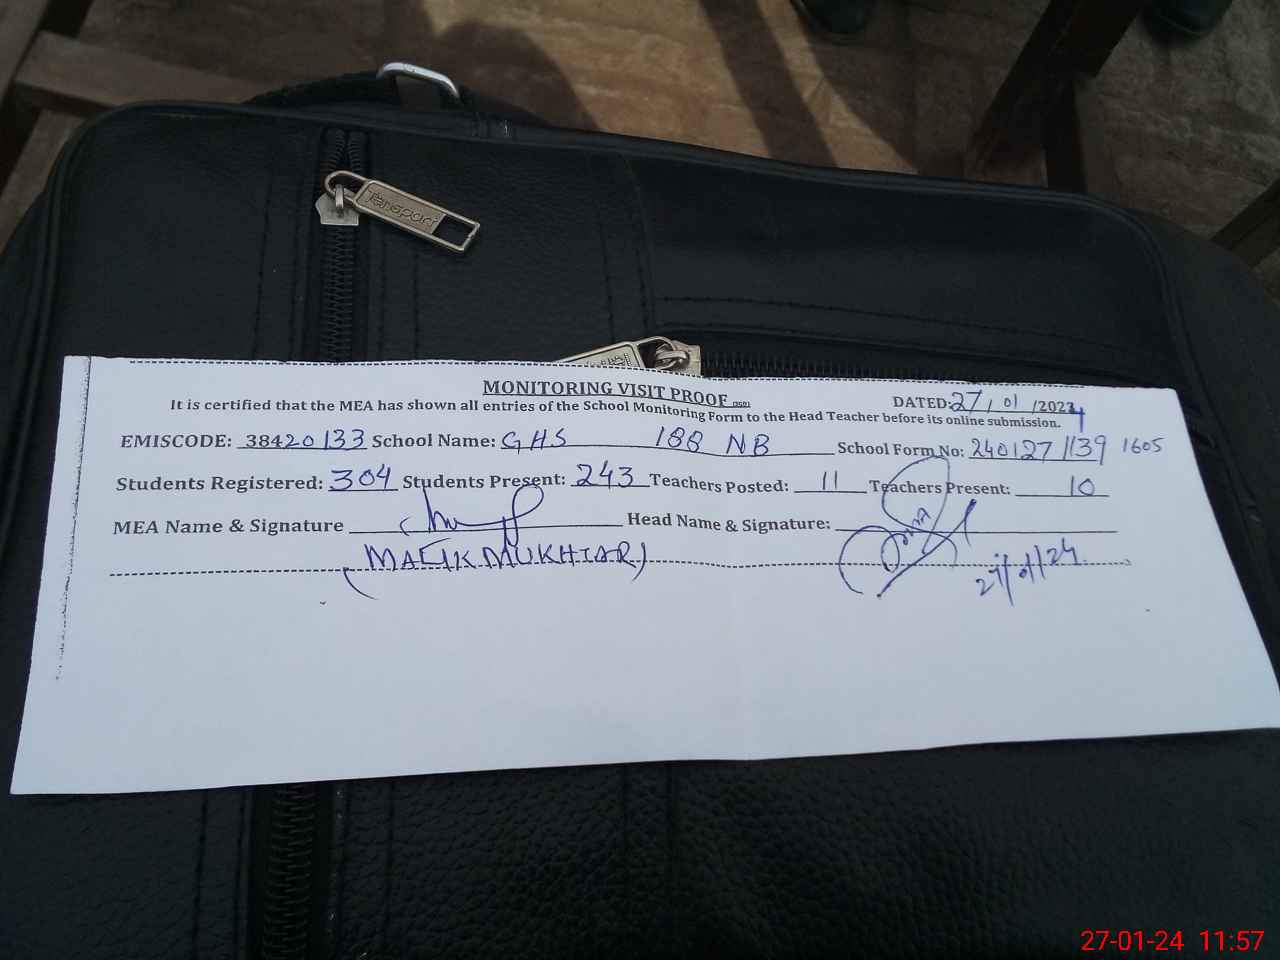 Tensport
MONITORING VISIT PROOF
DATED: 27/01/2024
It is certified that the MEA has shown all entries of the School Monitoring Form to the Head Teacher before its online submission.
EMISCODE: 38420133 School Name: GHS 188 NB School Form No: 240127 1139 1605
Students Registered: 304 Students Present: 243 Teachers Posted: 11 Teachers Present: 10
MEA Name & Signature Head Name & Signature:
(MALIK MUKHIAR)
27/01/24
27-01-24 11:57